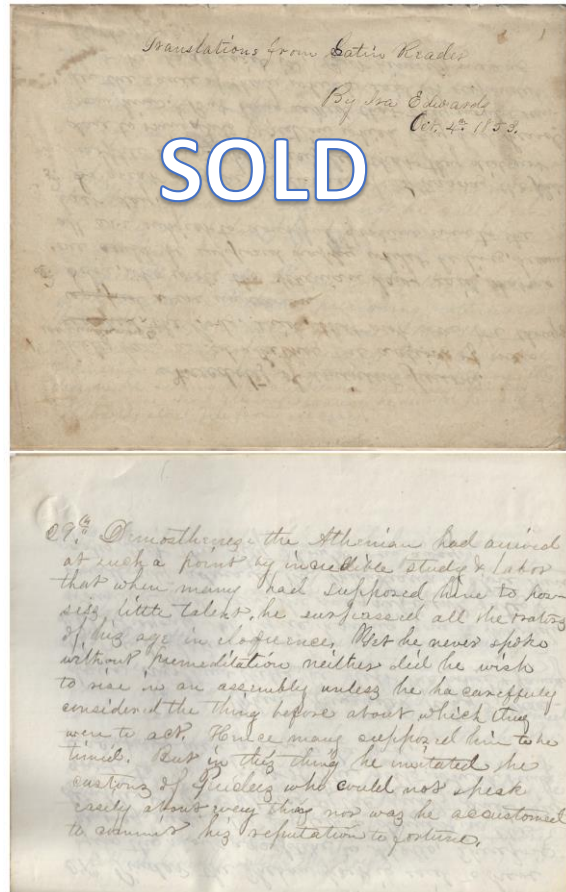 Translations from Latin Reader
By Ira Edwards
Oct. 4th 1853.
SOLD
29th Demosthenese the Athenian had arrived
at such a point by incredible study & labor
that when many had supposed him to pos-
sess little talent, he surpassed all the orators
of his age in eloquence. Yet he never spoke
without premeditation neither did he wish
to rise in an assembly unless he ha carefully
considered the thing before about which they
were to act. Hence many supposed him to be
timid. But in this thing he imitated the
custom of who could not speak
easily about every thing nor was he accustomed
to commit his reputation to fortune.